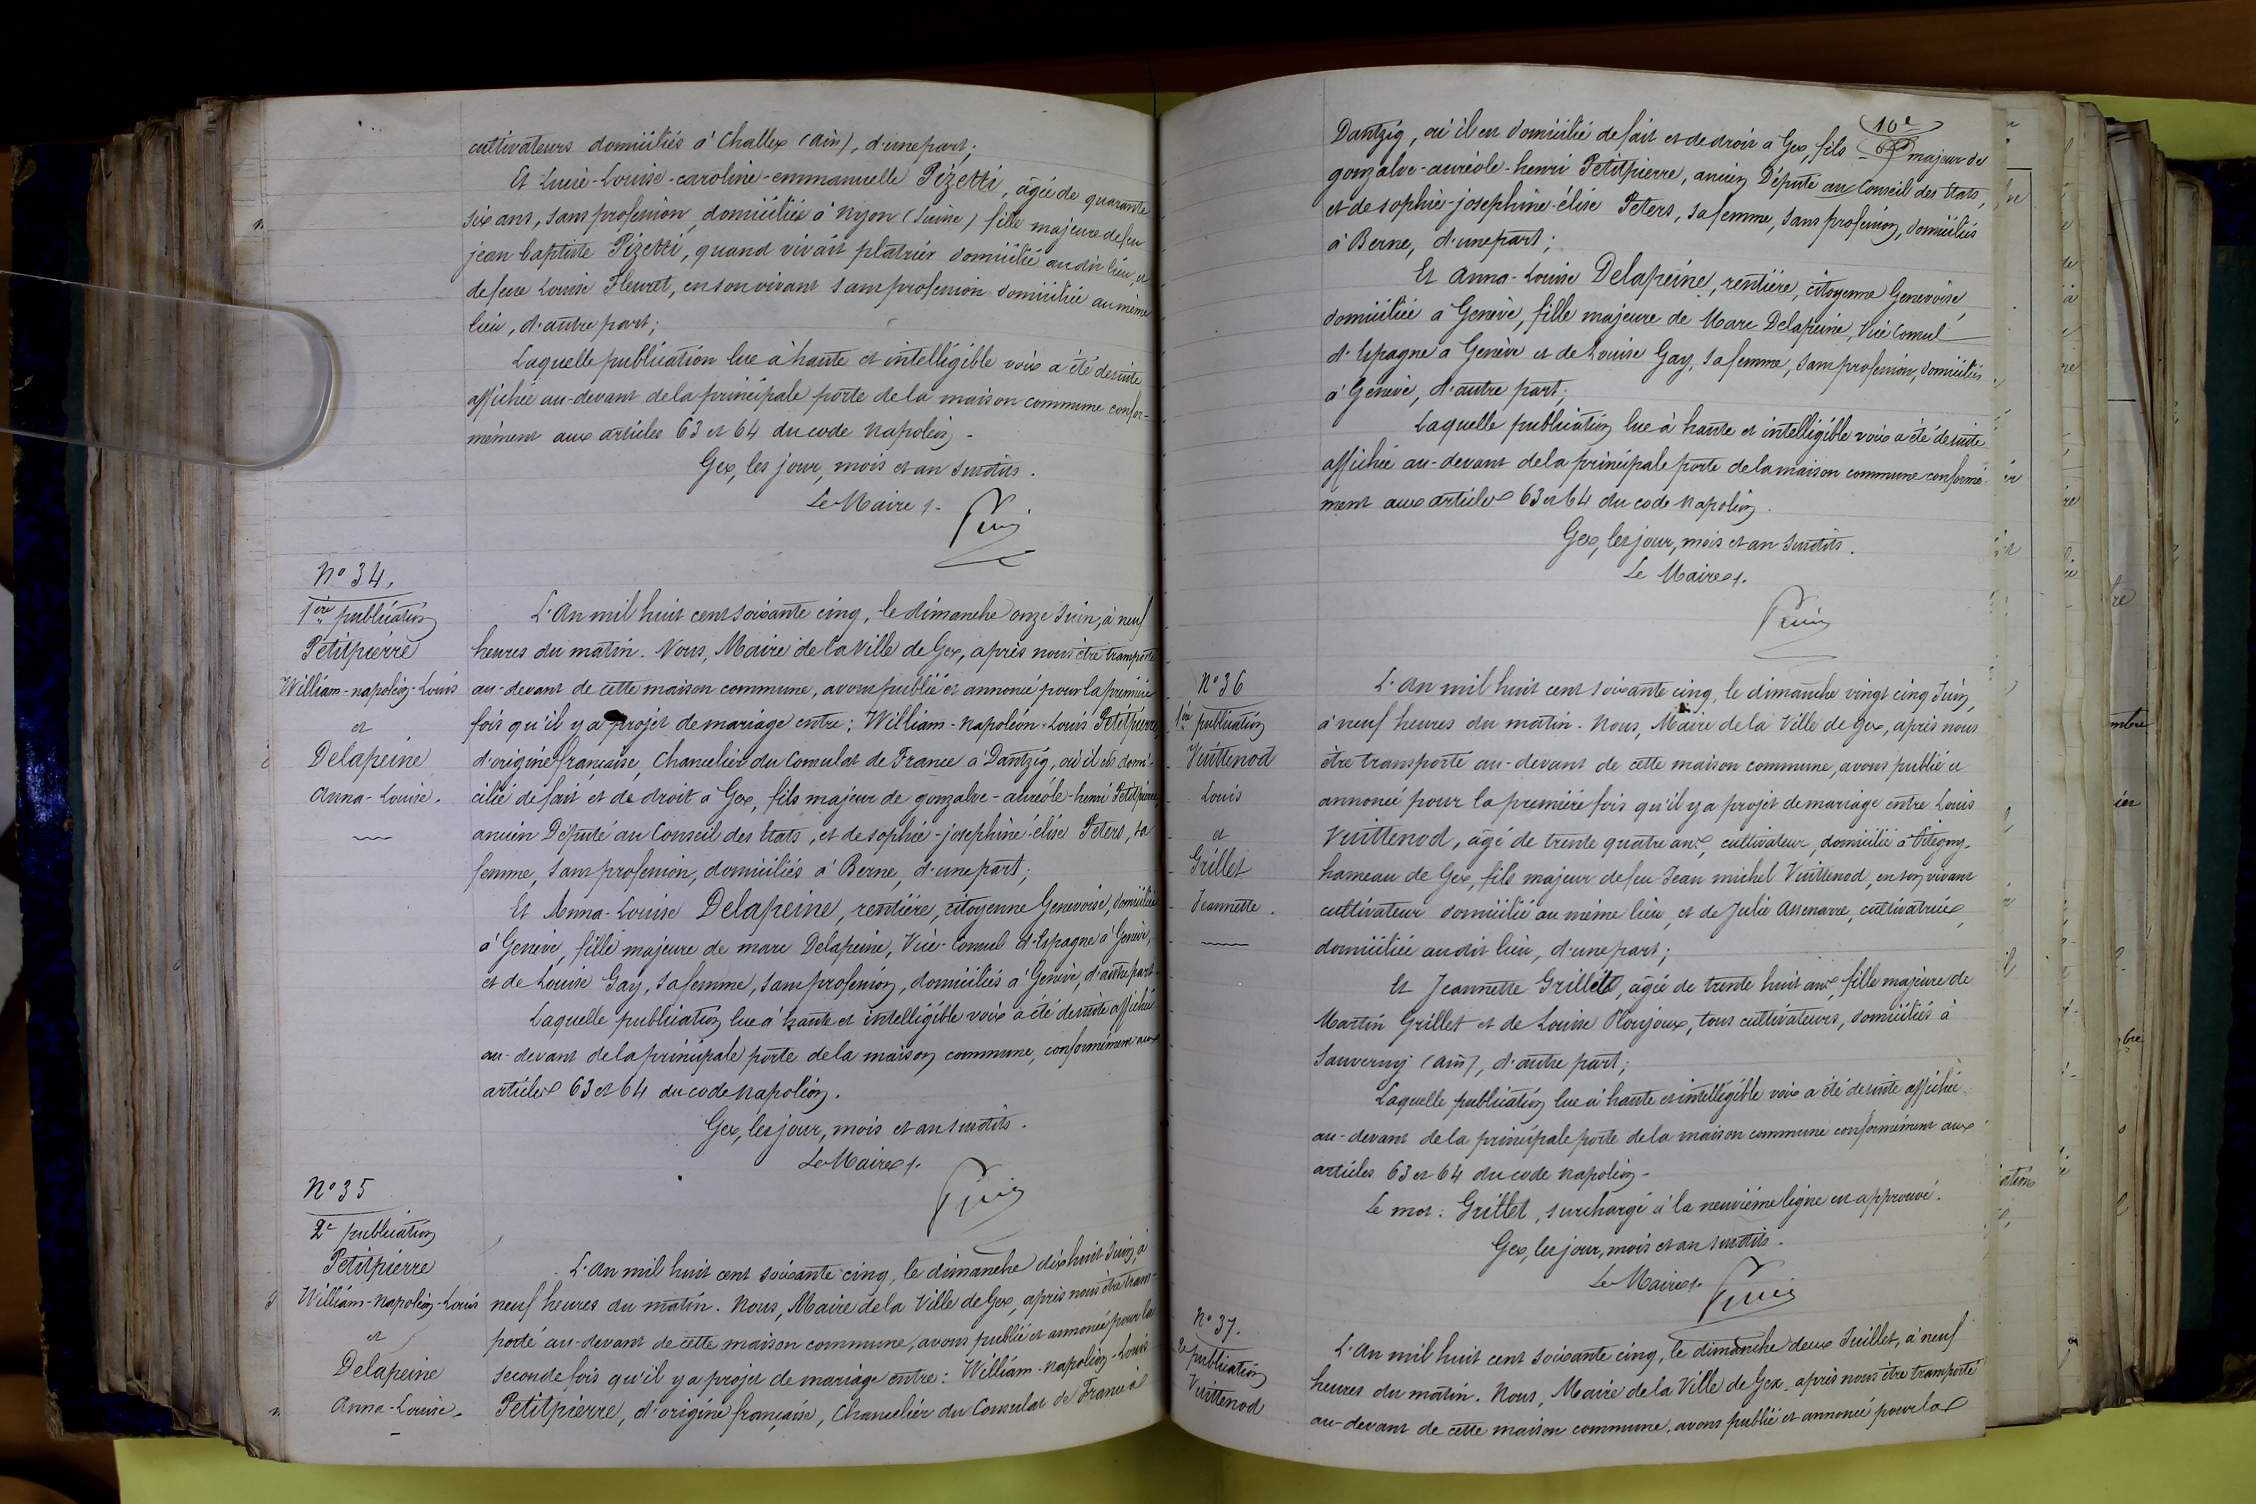 cultivateurs domiciliés à Challex (Ain), d'une part;
Et Lucie-Louise-caroline-emmanuelle Pizetti, âgée de quarante
six ans, sans profession, domiciliée à Nyon (Suisse) fille majeure de feu
jean baptiste Pizetti, quand vivait platrier domicilié audit lieu, et
de feue Louise Fleuret, en son vivant sans profession domiciliée au même
lieu, d'autre part;
Laquelle publication lue à haute et intelligible voix a été desuite
affichée au-devant de la principale porte de la maison commune confor-
mément aux articles 63 et 64 du code Napoléon -
Gex, les jour, mois et an susdits.
Le Maire
N° 34.
1ère publication
Petitpierre
William-napoléon-Louis
et
Delapeine
Anna-Louise.
L'An mil huit cent soixante cinq, le dimanche onze Juin, à neuf
heures du matin. Nous, Maire de la Ville de Gex, après nous être transporté
au-devant de cette maison commune, avons publié et annoncé pour la première
fois qu'il y a projet de mariage entre: William-Napoléon-Louis Petitpierre
d'origine française, Chancelier du Consulat de France à Dantzig, où il est domi-
cilié de fait et de droit à Gex, fils majeur de gonzalve-auréole-henri Petitpierre
ancien Député au Conseil des Etats, et de sophie-josephine-élise Peters, sa
femme, sans profession, domiciliés à Berne, d'une part;
Et Anna-Louise Delapeine, rentière, citoyenne Genevoise, domiciliée
à Genève, fille majeure de marc Delapeine, Vice-Consul d'Espagne à Genève,
et de Louise Gay, sa femme, sans profession, domiciliés à Genève, d'autre part
Laquelle publication lue à haute et intelligible voix a été desuite affichée
au-devant de la principale porte de la maison commune, conformément aux
articles 63 et 64 du code Napoléon.
Gex, les jour, mois et an susdits.
Le Maire
N° 35
2e publication
Petitpierre
William-Napoléon-Louis
et
Delapeine
Anna-Louise.
L'An mil huit cent soixante cinq, le dimanche dix huit Juin, à
neuf heures du matin. Nous, Maire de la Ville de Gex, après nous être trans-
porté au-devant de cette maison commune, avons publié et annoncé pour la
seconde fois qu'il y a projet de mariage entre: William-Napoléon-Louis
Petitpierre, d'origine française, Chancelier du Consulat de France à
10e
Dantzig, où il est domicilié de fait et de droit à Gex, fils majeur de
gonzalve-auréole-henri Petitpierre, ancien Député au Conseil des Etats,
et de sophie-josephine-élise Peters, sa femme, sans profession, domiciliés
à Berne, d'une part;
Et Anna-Louise Delapeine, rentière, citoyenne Genevoise,
domiciliée à Genève, fille majeure de Marc Delapeine, Vice Consul
d'Espagne à Genève et de Louise Gay, sa femme, sans profession, domiciliés
à Genève, d'autre part;
Laquelle publication lue à haute et intelligible voix a été desuite
affichée au-devant de la principale porte de la maison commune conformé-
ment aux articles 63 et 64 du code Napoléon.
Gex, les jour, mois et an susdits.
Le Maire
N° 36
1ère publication
Vuittenod
Louis
et
Grillet
Jeannette.
L'An mil huit cent soixante cinq, le dimanche vingt cinq Juin,
à neuf heures du matin. Nous, Maire de la Ville de Gex, après nous
être transporté au-devant de cette maison commune, avons publié et
annoncé pour la première fois qu'il y a projet de mariage entre Louis
Vuittenod, âgé de trente quatre ans, cultivateur, domicilié à Pitegny,
hameau de Gex, fils majeur de feu Jean michel Vuittenod, en son vivant
cultivateur domicilié au même lieu, et de Julie cultivatrice,
domiciliée audit lieu, d'une part;
Et Jeannette Grillet, âgée de trente huit ans, fille majeure de
Martin Grillet et de Louise tous cultivateurs, domiciliés à
Sauverny (Ain), d'autre part;
Laquelle publication lue à haute et intelligible voix a été desuite affichée
au-devant de la principale porte de la maison commune conformément aux
articles 63 et 64 du code Napoléon -
Le mot: Grillet, surchargé à la neuvième ligne est approuvé.
Gex, les jour, mois et an susdits.
Le Maire
N° 37.
2e publication
Vuittenod
L'An mil huit cent soixante cinq, le dimanche deux Juillet, à neuf
heures du matin. Nous, Maire de la Ville de Gex, après nous être transporté
au-devant de cette maison commune, avons publié et annoncé pour la